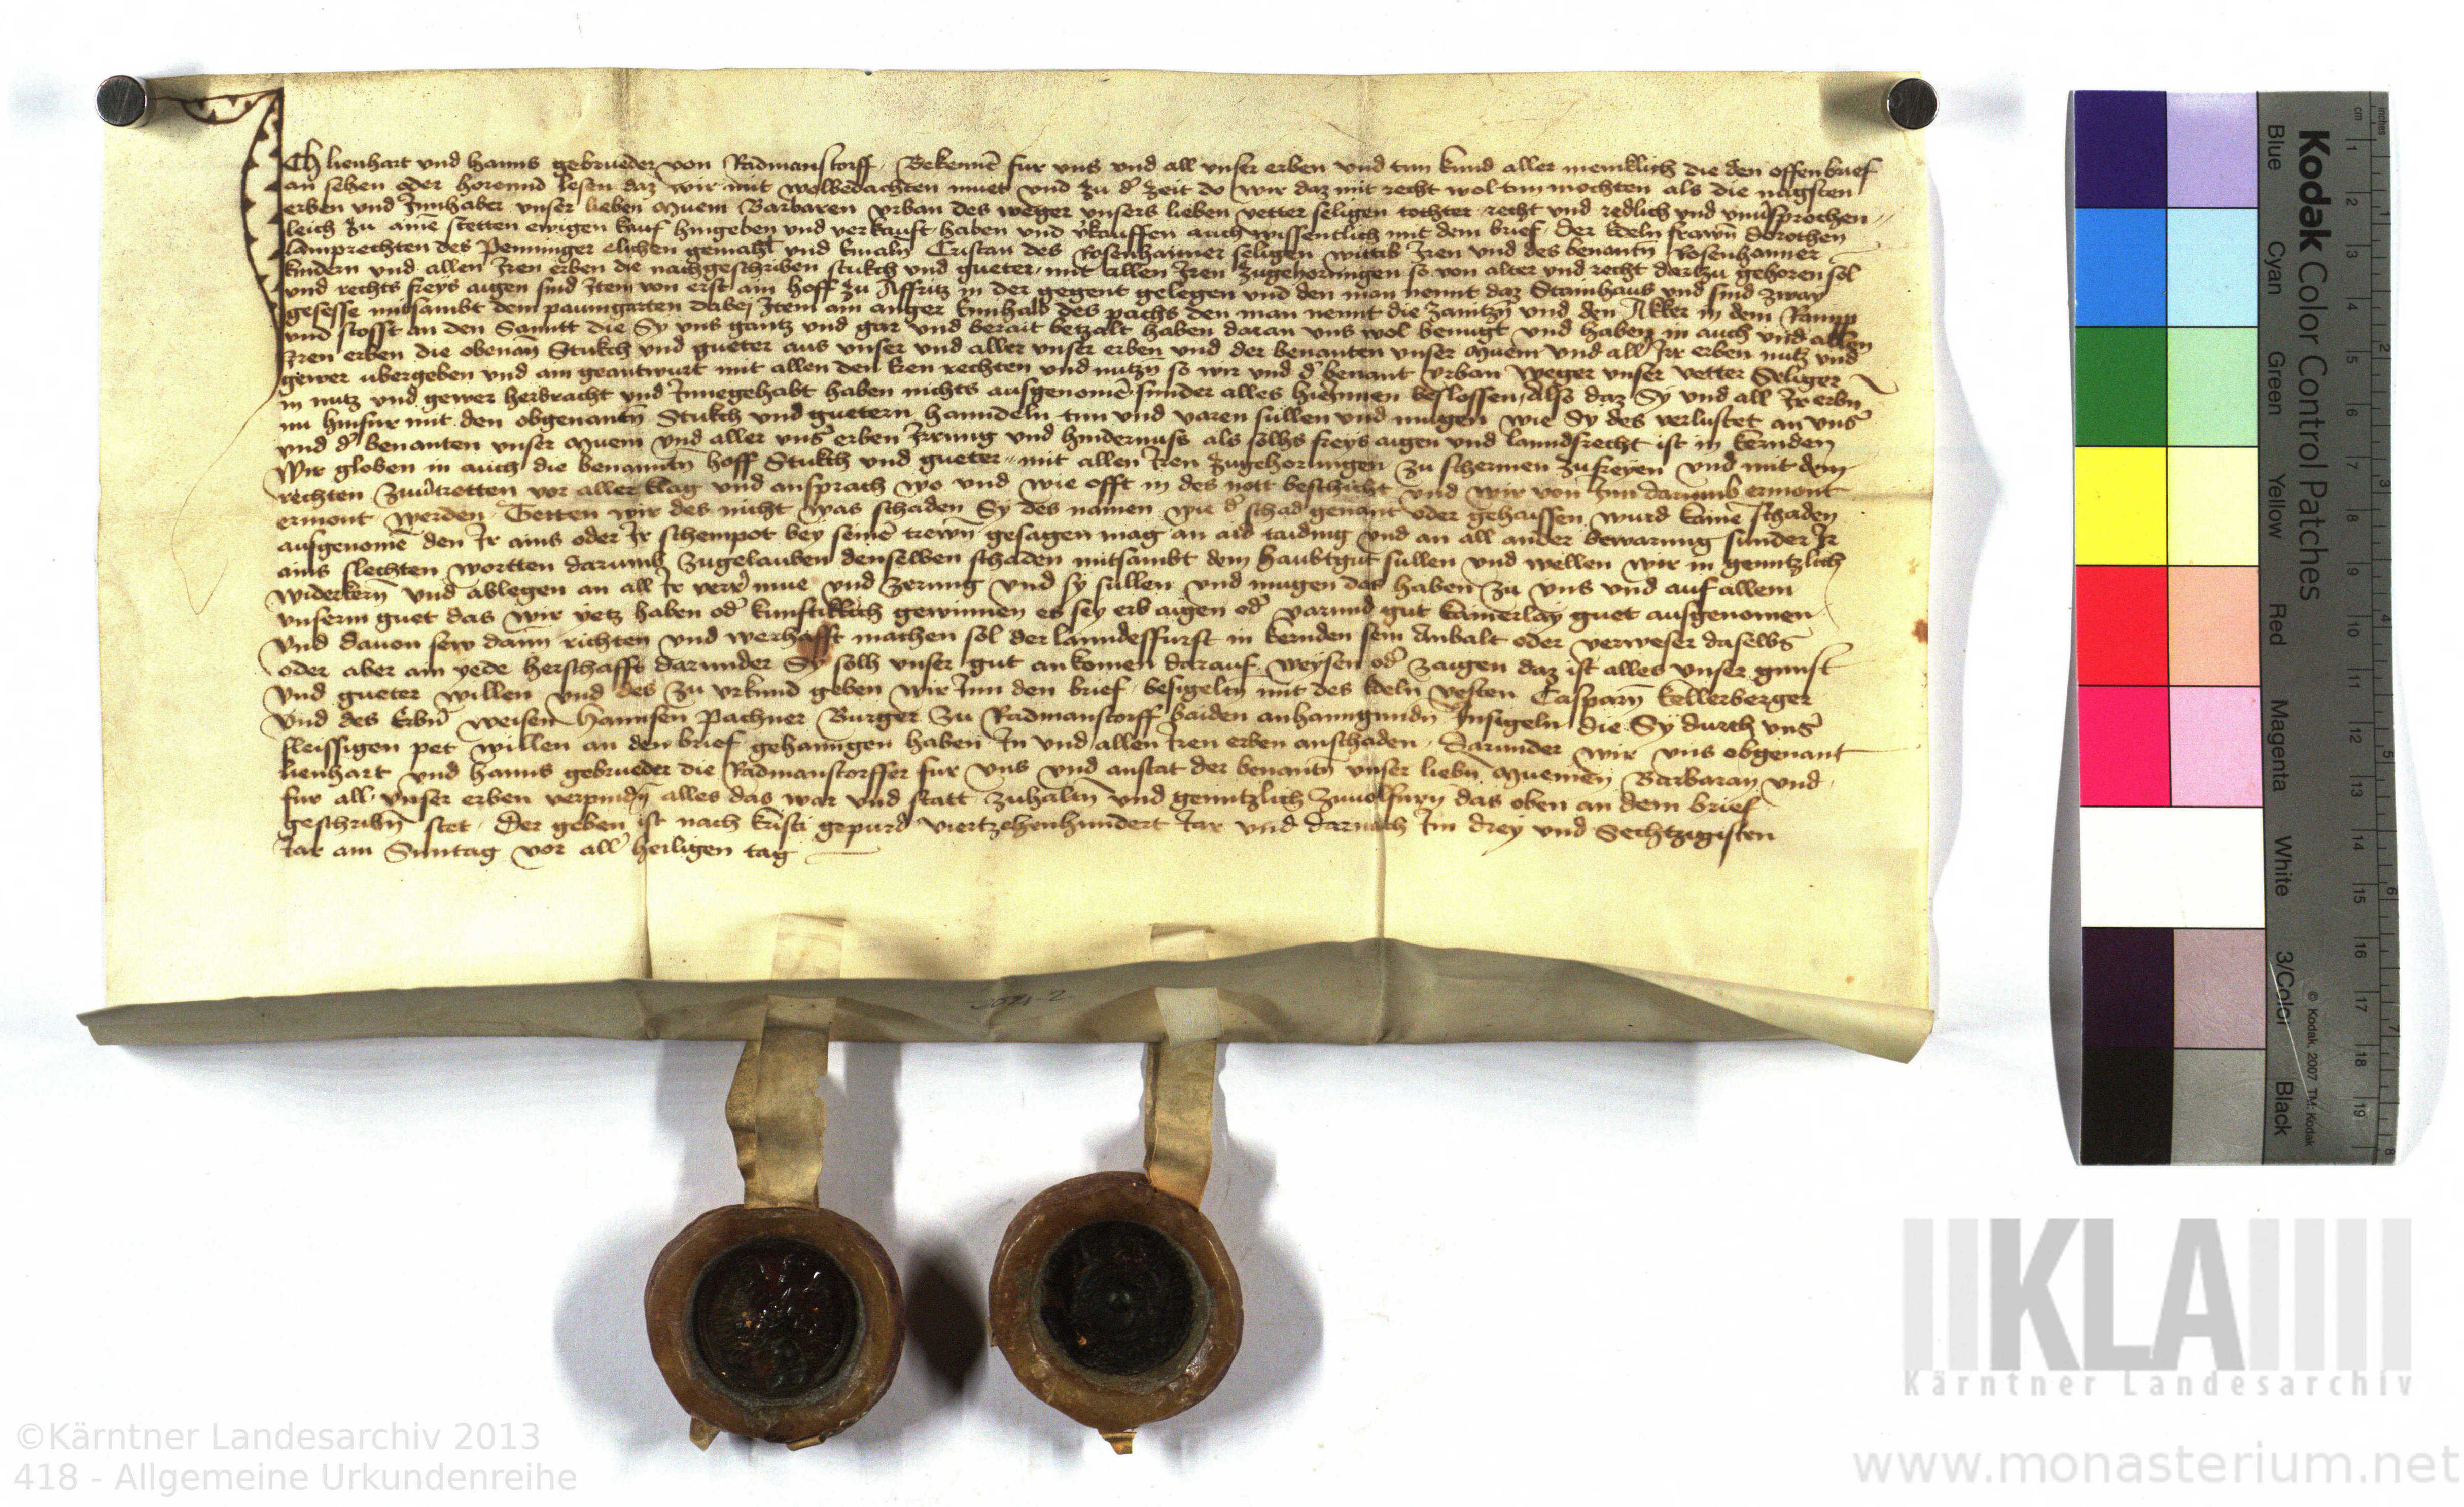 Ich lienhart vnd hanns gebrueder von Radmanstorff Bekennē fur vns vnd all vnser erben vnd tun kund aller meniklich die den offen brief
an sehen oder horennd lesen daz wir mit wolbedachten muet vnd zu d' zeit do wir daz mit recht wol tun mochten als die nagsten
erben vnd Innhaber vnser lieben Muem Barbaren vrban des weger vnsers lieben vetter seligen tochter recht vnd redlich vnd vnu'sprochen
leich zu aine stetten ewigen kauf hingeben vnd verkauft haben vnd v'kauffen auch wissentlich mit dem brief der Edeln frawn Dorothen
lamprechten des Penninger elichen gemahl vnd Cristan des Rosenhaimer seligen wittib Iren vnd des benantn Rosenhaimer
kindern vnd allen Iren erben die nachgeschriben stukch vnd gueter mit allen Iren zugehorungen so von alter vnd recht dartzu gehoren sol
vnd rechts freys aigen sind Item von erst ain hoff zu Affritz in der gegent gelegen vnd den man nennt daz Stainhaus vnd sind zway
gesesse mitsambt dem paumgarten dabej Item ain anger des pachs den man nennt die vnd den Akker in dem
vnd stosst an den die Sy vns gantz vnd gar vnd berait betzalt haben daran vns wol benugt vnd haben in auch vnd allen
Iren erben die obenan Stukch vnd gueter aus vnser vnd aller vnser erben vnd der benanten vnser Muem vnd all Irr erben nutz vnd
gewer vbergeben vnd ain geantwurt mit allen den rechten vnd nutzn so wir vnd d' benant vrban weger vnser vetter Seliger
in nutz vnd gewer herbracht vnd Innegehabt haben nichts ausgenome sunder alles hierinnen beslossen Also daz Sy vnd all Ir erbn
nu hinfur mit den obgenantn Stukch vnd guetern hanndeln tun vnd varen sullen vnd mugen wie Sy des verlustet an vns'
vnd d' benanten vnser Muem vnd aller vns' erben Irrung vnd hindernuss als solhs freys aigen vnd lanndsrecht ist in kernden
Wir globen in auch die benantn hoff Stukch vnd gueter mit allen Iren zugehorungen zu schermen zufreyen vnd mit dem
rechten zuu'tretten vor aller klag vnd ansprach wo vnd wie offt in des nott beschiecht vnd wir von Inn darumb ermont
ermont werden Tetten wir des nicht was schaden Sy des namen wie d' schad genant oder gehaissen wurd kaine schaden
ausgenome den Ir ains oder Ir schempot bey seine trewn gesagen mag an aid taiding vnd an all ander bewarung sunder Ir
ains slechten wortten darumb zugelauben denselben schaden mitsambt dem haubtgut sullen vnd wellen wir in genntzlich
widerkern vnd ablegen an all Ir verr' mue vnd zerung vnd sy sullen vnd mugen das haben zu vns vnd auf allem
vnserm guet das wir yetz haben od' kunfticklich gewinnen es sey erb aigen od' varund gut kainerlay guet ausgenomen
Vnd dauon sew dann richten vnd werhafft machen sol der lanndesfurst in kernden sein Anbalt oder verweser daselbs
oder aber ain yede herschafft darunder Sy solh vnser gut ankomen darauf weysen od' zaigen daz ist alles vnser gunst
Vnd gueter willen vnd des zu vrkund geben wir Inn den brief besigeltn mit des Edeln vesten Casparn kellerberger
Vnd des Erbn weisen Hannsen Pachner Burger zu Radmanstorff baiden anhanngundn Insigeln die Sy durch vns'
fleissigen pet willen an den brief gehanngen haben In vnd allen Iren erben anschaden Darunder wir vns obgenant
lienhart vnd hanns gebrueder die Radmanstorffer fur vns vnd anstat der benantn vnser liebn Muemen Barbaran vnd
fur all vnser erben verpindn alles das war vnd statt zuhaltn vnd genntzlich zuuolfurn das oben an dem brief
geschribn stet Der geben ist nach kristi gepurd viertzehenhundert Iar vnd darnach Im drey vnd Sechtzigisten
Iar am Suntag vor all' heiligen tag
Kodak Color Control Patches
Blue Cyan Green Yellow Red Magenta White 3/Color Black
© Kodak, 2007 TM: Kodak
cm 1 2 3 4 5 6 7 8 9 10 11 12 13 14 15 16 17 18 19
inches 1 2 3 4 5 6 7 8
KLA
Kärntner Landesarchiv
©Kärntner Landesarchiv 2013
418 - Allgemeine Urkundenreihe
www.monasterium.net